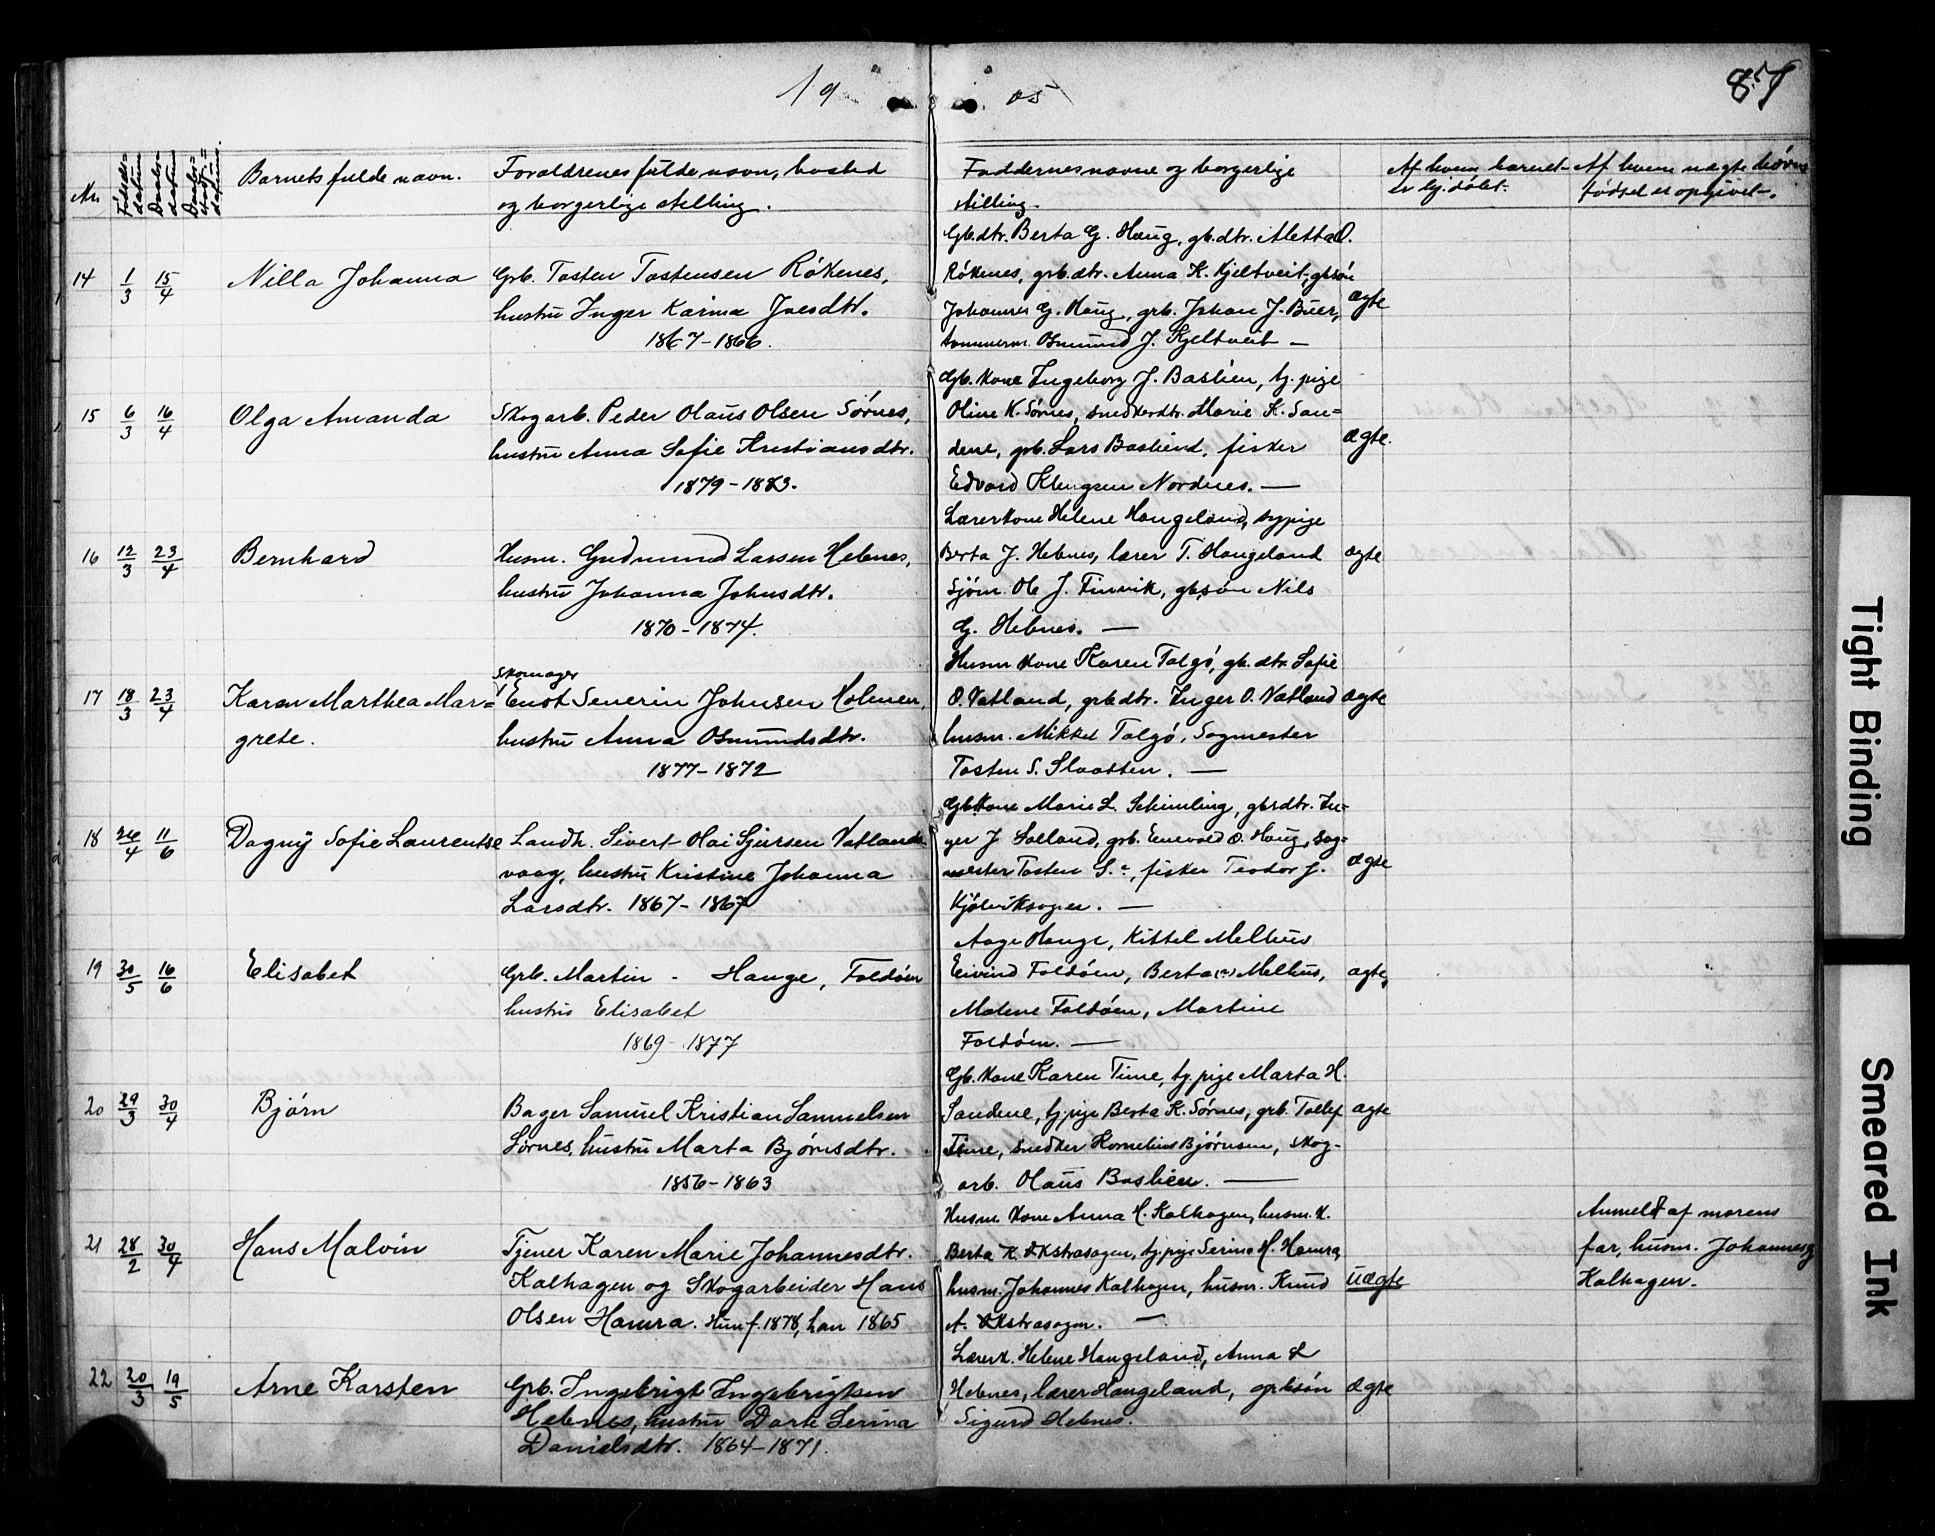 19 05
87
Nr. Fødsels=datum Daabs=datum Barnets fulde navn. Forældrenes fulde navn, bosted
og borgerlige stilling.
Faddernes navne og borgerlige
stilling.
Af hvem barnet
er hj. døbt.
Af hvem uægte børns
fødsel er opgivet.
14 1/3 15/4 Nilla Johanna
Grb. Tosten Tostensen Rökenes,
hustru Inger Karina Joesdtr.
1867-1866.
Gb.dtr. Berta G. Haug, gb.dtr. Aletta O.
Rökenes, grb.dtr. Anna K. Kjeltveit, gbsön
Johannes G. Haug, grb. Johan J. Buer,
tømmerm. Osmund J. Kjeltveit —
ægte
15 6/3 16/4 Olga Amanda
Skogarb. Peder Olaus Olsen Sörnes,
hustru Anna Sofie Kristiansdtr.
1879-1883.
Gb. kone Ingeborg J. Baslien, tj. pige
Oline K. Sörnes, snedkerdtr. Marie K. San=
dene, grb. Lars Basliend, fisker
Edvard Klengsen Nordnes. —
ægte.
16 12/3 23/4 Bernhard
Husm. Gudmund Larsen Hebnes,
hustru Johanna Johnsdtr.
1870-1874.
Lærerkone Helene Haugeland, sypige
Berta J. Hebnes, lærer T. Haugeland
Sjöm. Ole J. Finvik, gbsön Nils
G. Hebnes. —
ægte
17 18/3 23/4 Karen Marthea Mar=
grete.
Skomager
Enot Severin Johnsen Holmen,
hustru Anna Osmundsdtr.
1877-1872
Husm. kone Karen Talgö, gb. dtr. Sofie
O. Vatland, grb.dtr. Inger O. Vatland
husm. Mikkel Talgö, Sogmester
Tosten S. Slaatten. —
ægte
18 26/4 11/6 Dagny Sofie Laurentse
Landh. Sivert Hai Sjursen Vatlands
vaag, hustru Kristine Johanna
Larsdtr. 1867-1867
Gb.kone Marie L. Schimling, gbrdtr. In-
ger J Solland, grb. Enevald O. Haug, Sog-
mester Tosten S. , fisker Teodor J.
Kjölvikvagen. —
ægte
19 30/5 16/6 Elisabet
Grb. Martin - Hauge, Foldöen
hustru Elisabet
1869-1877
Aage Hauge, Kittel Melhus
Eivind Foldöen, Berta Melhus,
Malene Foldöen, Martine
Foldöen. —
ægte,
20 29/3 30/4 Bjørn
Bager Samuel Kristian Samuelsen
Sörnes, hustru Marta Bjørnsdtr.
1856-1863
Gb. kone Karen Time, tj. pige Marta H.
Sandene, tj. pige Berta K. Sörnes, grb. Tollef
Time, snedker Kornelius Bjørnsen, skog-
arb. Olaus Baslien. —
ægte
21 28/2 30/4 Hans Malvin
Tjener Karen Marie Johannesdtr.
Kalhagen og Skogarbeider Hans
Olsen Hamra. Hun f. 1878, han 1865
Husm. kone Anna H. Kalhagen, husm. k.
Berta K. Økstrasagen, tj. pige Serine H. Hamra,
husm. Johannes Kalhagen, husm. Knud
A. Økstrasagen. —
uægte
Anmeldt af morens
far, husm. Johannes
Kalhagen.
22 20/3 19/5 Arne Karsten
Grb. Ingebrigt Ingebrigtsen
Hebnes, hustru Dorte Serina
Danielsdtr. 1864-1871.
Lærerk. Helene Haugeland, Anna L
Hebnes, lærer Haugeland, grbsön
Sigurd Hebnes.
ægte
Tight Binding
Smeared Ink